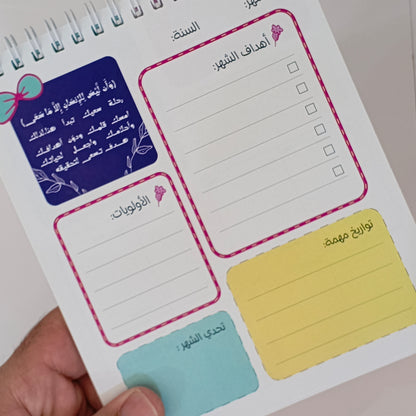 الشهر:
السنة:
أهداف الشهر:
(وأن ليس للإنسان إلا ما سعى)
رحلة سعيك تبدأ هنا
امسك قلمك ودون أهدافك
وأحلامك واجعل لحياتك
هدف تسعى لتحقيقه
الأولويات:
تواريخ مهمة:
تحدي الشهر: